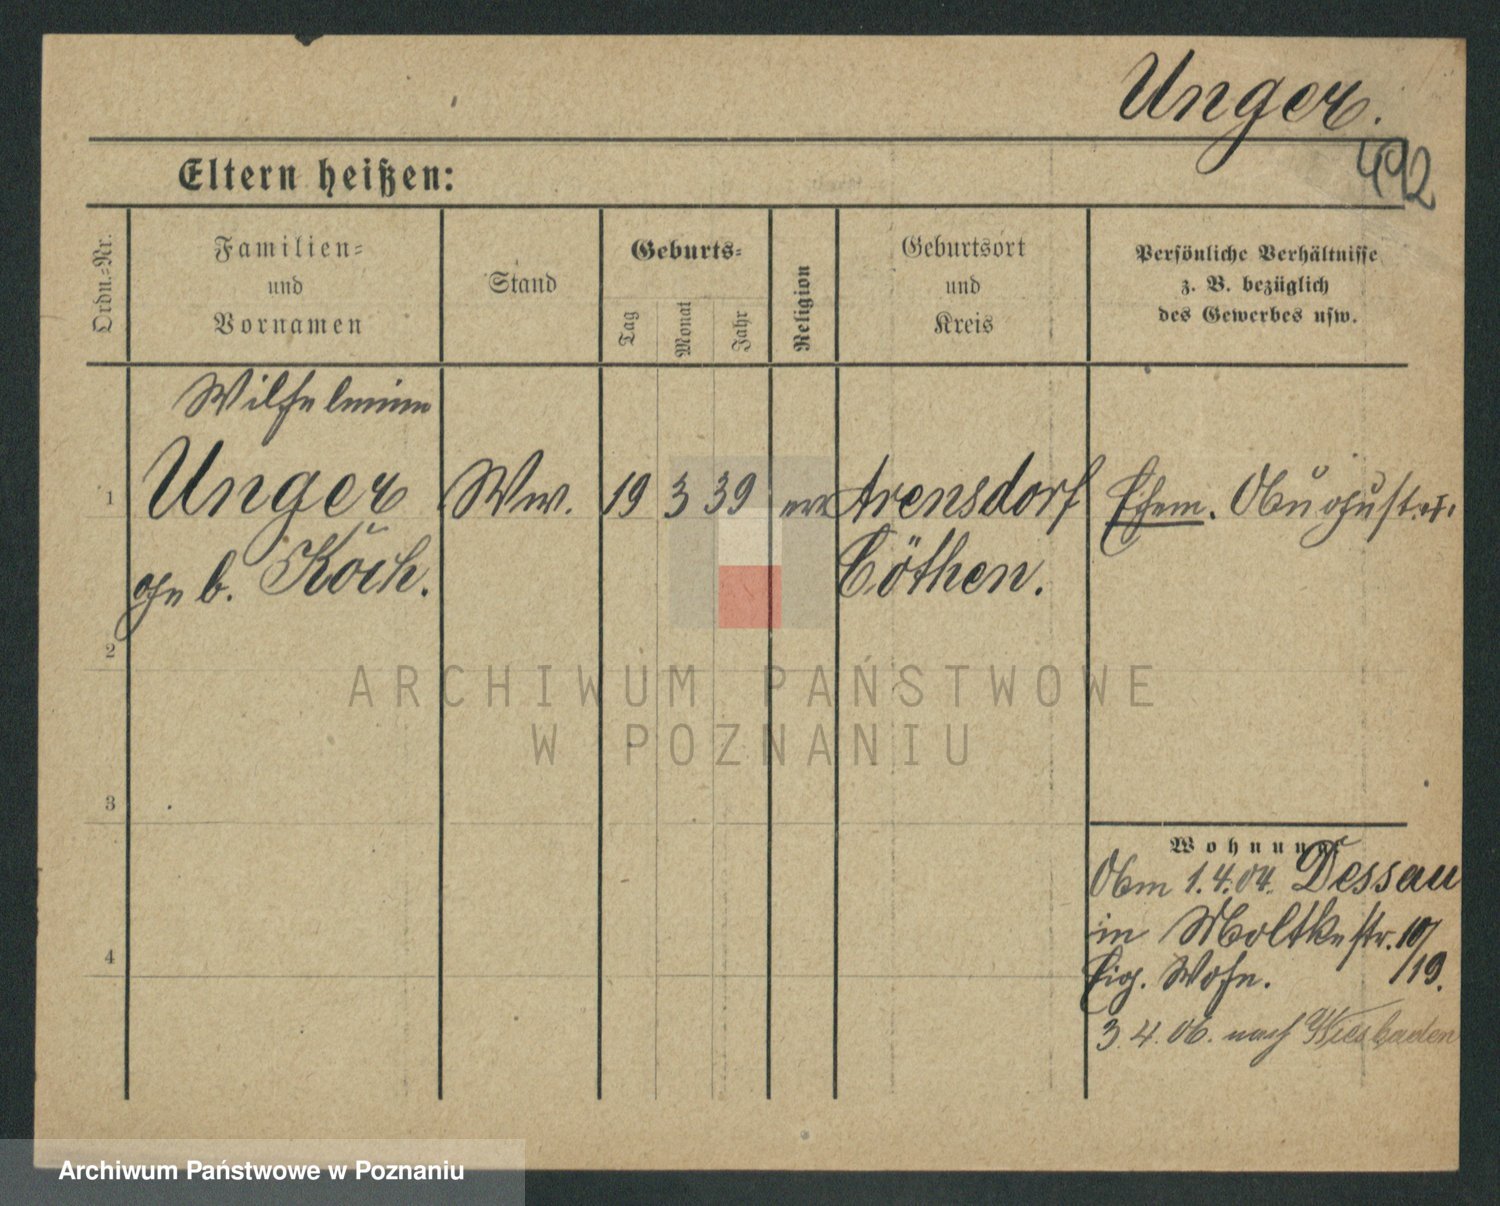 Unger.
492
Eltern heißen:
Ordn.-Nr.
Familien-
und
Vornamen
Stand
Geburts-
Tag
Monat
Jahr
Religion
Geburtsort
und
Kreis
Persönliche Verhältnisse
z. B. bezüglich
des Gewerbes usw.
Wilhelmine
1 Unger Ww. 19 3 39 Arensdorf Ehem. August
geb. Koch. Cöthen.
2
3
4
ARCHIWUM PAŃSTWOWE
W POZNANIU
Wohnung
Am 1.4.04. Dessau
in Moltkestr. 10/
Eig. Wohn. /19.
3.4.06. nach Wiesbaden
Archiwum Państwowe w Poznaniu